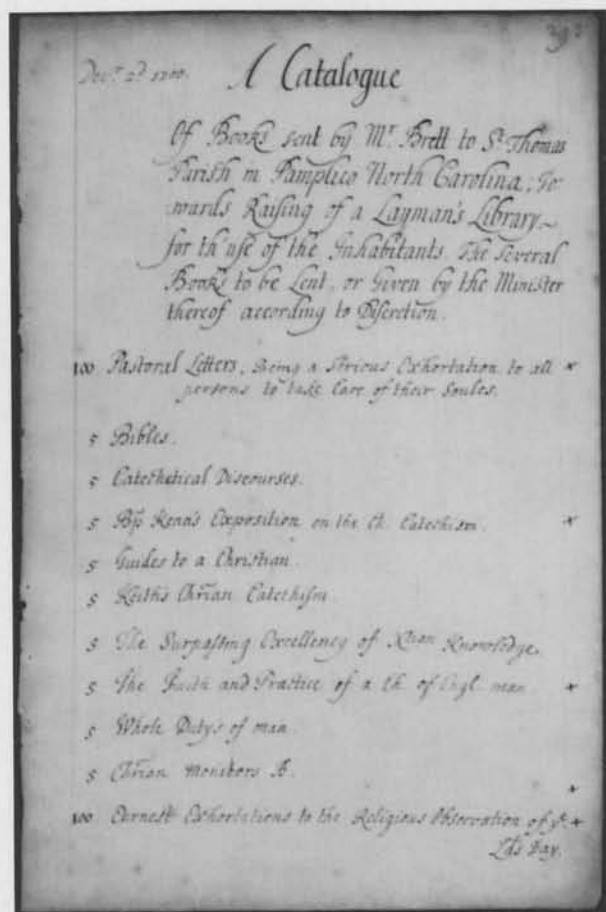 Decr. 2d 1700.
A Catalogue
Of Books sent by Mr. Brett to St. Thomas
Parish in Pamplico North Carolina; To
wards Raising of a Layman's Library
for th' use of the Inhabitants. The Several
Books to be Lent, or Given by the Minister
thereof according to Discretion.
100 Pastoral Letters, Being a Serious Exhortation to all x
persons to take Care of their Soules.
5 Bibles.
5 Catechetical Discourses.
5 Bp Kenn's Exposition on the Ch. Catechism. x
5 Guides to a Christian.
5 Keith's Chrian Catechism.
5 The Surpassing Excellency of Xtian Knowledge.
5 The Faith and Practice of a Ch. of Engl. man x
5 Whole Duty's of man.
5 Chrian Monitors
x
100 Earnest Exhortations to the Religious Observation of ye. x
Lds Day.